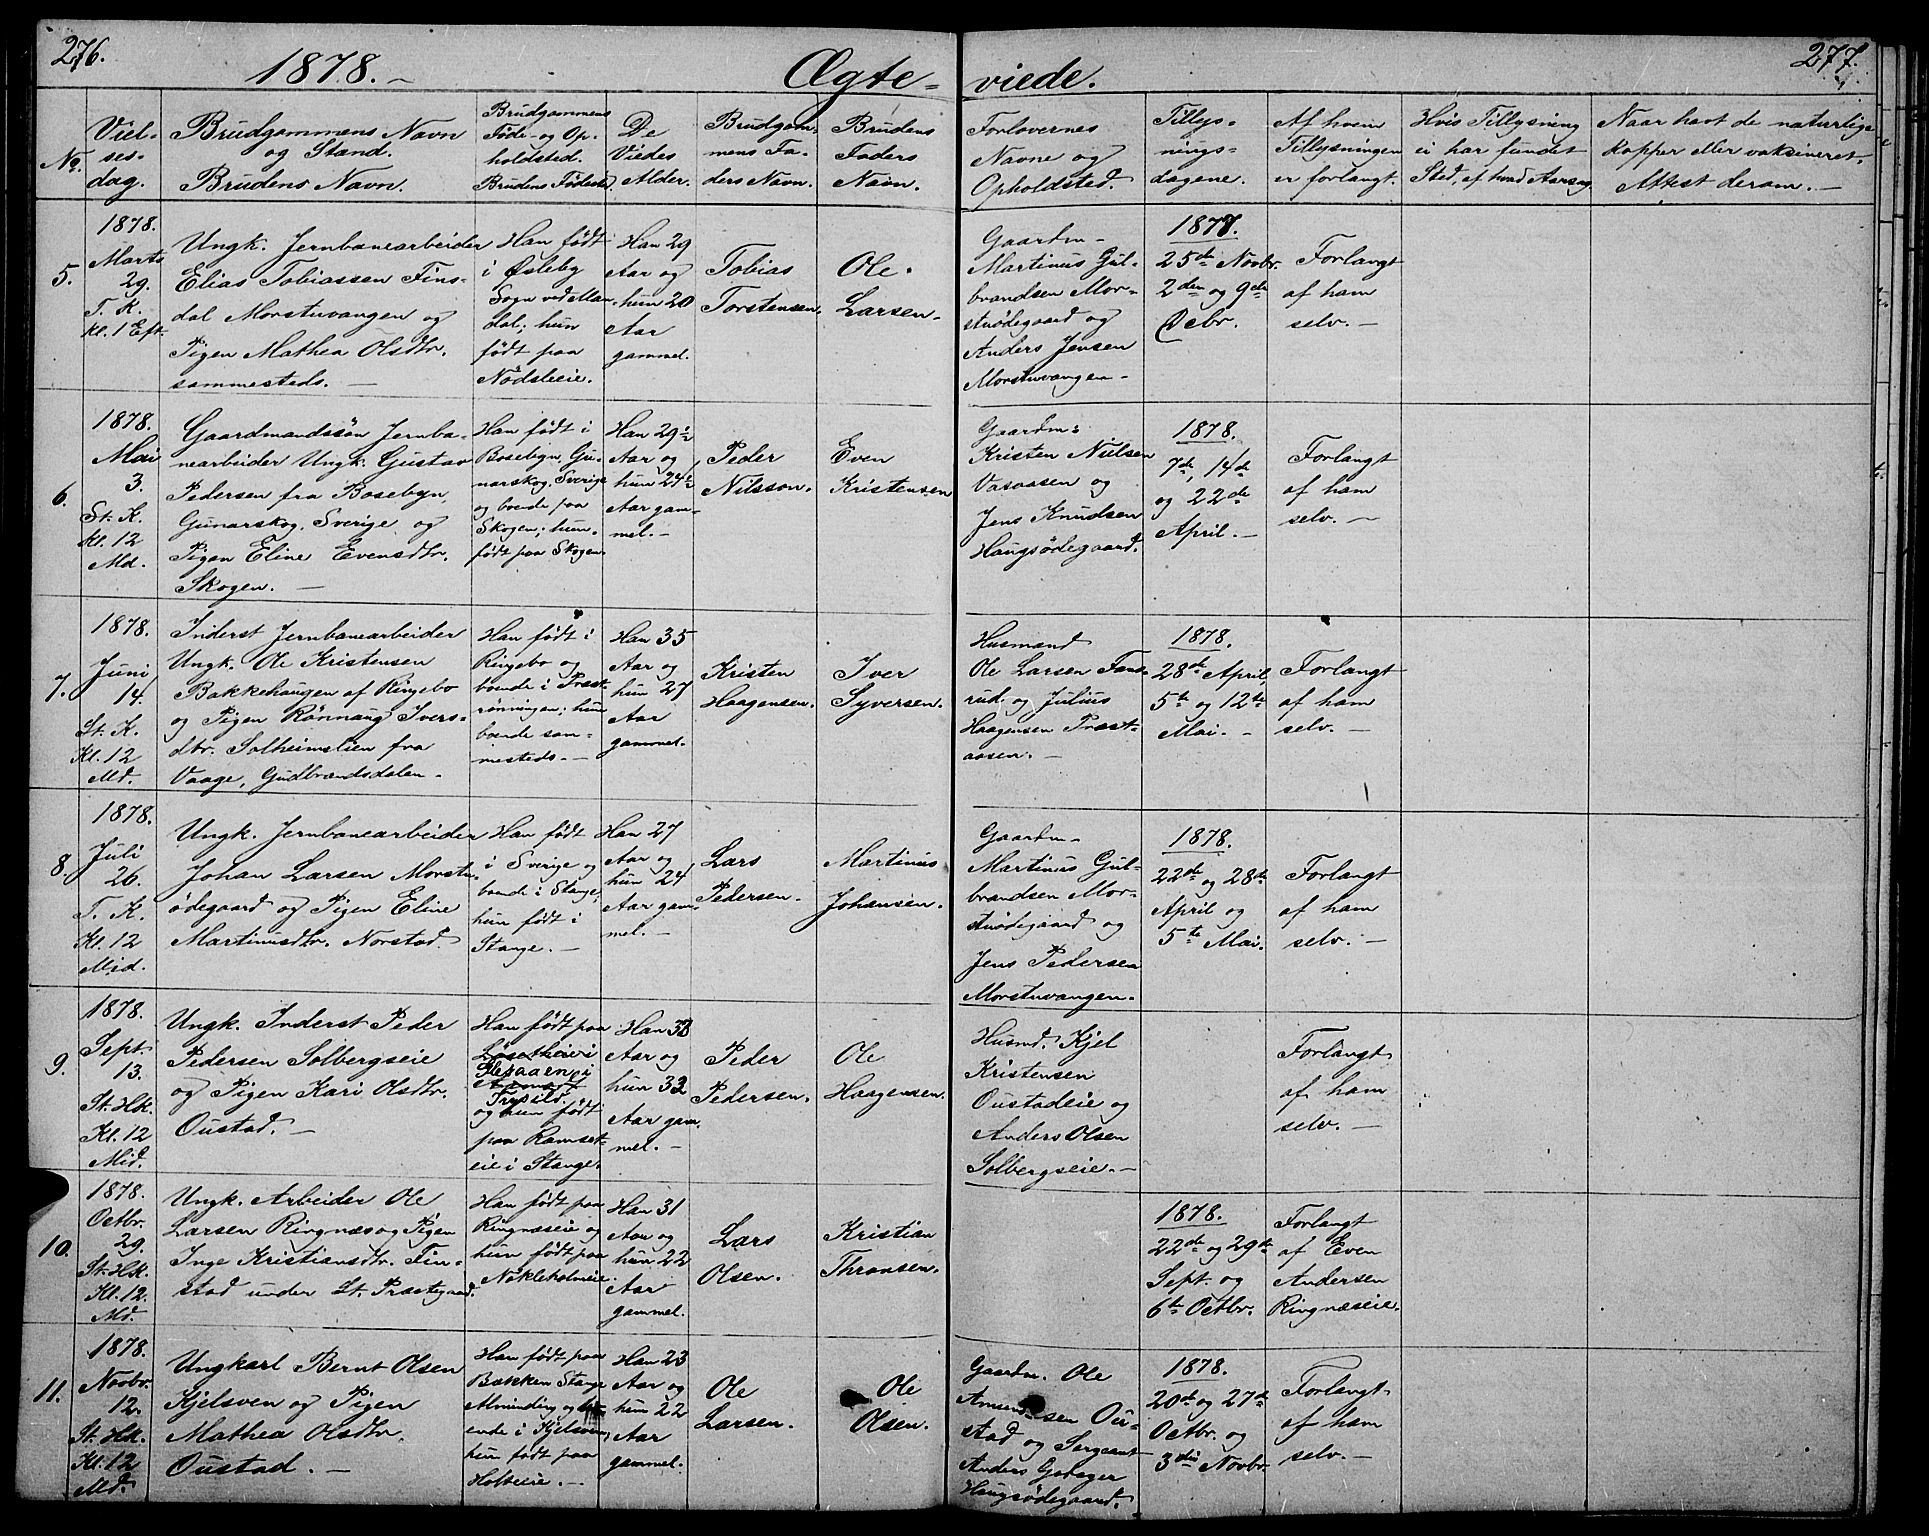 276.
1878.
Ægte-
No.
Viel-
ses-
dag.
Brudgommens Navn
og Stand.
Brudens Navn.
Brudgommens
Føde- og Op-
holdsted.
Brudens Fødested.
De
Viedes
Alder.
Brudgom-
mens Fa-
ders Navn.
Brudens
Faders
Navn.
5.
1878.
Marts
29.
T. K.
Kl. 1 Eft.
Ungk. Jernbanearbeider
Elias Tobiassen Fins-
dal Morstuvangen og
Pigen Mathea Olsdtr.
sammesteds. —
Han født
i Øsleby
Sogn ved Man-
dal; hun
født paa
Nødsleeie.
Han 29
Aar og
hun 20
Aar
gammel.
Tobias
Torstensen.
Ole
Larsen.
6.
1878.
Mai
3.
St. K.
Kl. 12
Md.
Gaardmandssøn Jernba-
nearbeider Ungk. Gustav
Pedersen fra Bosebyn,
Gunarskog, Sverige og
Pigen Eline Evensdtr.
Skogen. —
Han født i
Bosebyn, Gu-
narskog, Sverige
og boende paa
Skogen; hun
født paa Skogen.
Han 29½
Aar og
hun 24½
Aar gam-
mel. —
Peder
Nilsson.
Even
Kristensen
7.
1878.
Juni
14.
St. K.
Kl. 12
Md.
Inderst Jernbanearbeider
Ungk. Ole Kristensen
Bakkehaugen af Ringebo
og Pigen Rønnaug Ivers-
dtr. Solheimslien fra
Vaage, Gudbrandsdalen.
Han født i
Ringebo og
boende i Præst-
rønningen; hun
boende sam-
mesteds. —
Han 35
Aar og
hun 27
Aar
gammel.
Kristen
Haagensen.
Iver
Syversen.
8.
1878.
Juli
26.
T. K.
Kl. 12
Mid.
Ungk. Jernbanearbeider
Johan Larsen Morstu-
ødegaard og Pigen Eline
Martinusdtr. Norstad.
Han født
i Sverige og
boende i Stange;
hun født i
Stange. —
Han 27
Aar og
hun 24
Aar gam-
mel. —
Lars
Pedersen.
Martinus
Johansen.
9.
1878.
Sept.
13.
St. Hk.
Kl. 12
Mid.
Ungk. Inderst Peder
Pedersen Solbergseie
og Pigen Kari Olsdtr.
Oustad. —
Han født paa
i
Trysild,
og hun født
paa Ramset-
eie i Stange.
Han 33
Aar og
hun 33
Aar gam-
mel. —
Peder
Pedersen.
Ole
Haagensen.
10.
1878.
Octbr.
29.
St. Hk.
Kl. 12.
Md.
Ungk. Arbeider Ole
Larsen Ringnæs og Pigen
Inge Kristiansdtr. Fin-
stad under St. Præstegaard.
Han født paa
Ringnæseie og
hun født paa
Nøkleholmeie.
Han 31
Aar og
hun 22
Aar
gammel.
Lars
Olsen.
Kristian
Thronsen.
11.
1878.
Novbr.
12.
St. Hk.
Kl. 12
Md.
Ungkarl Bernt Olsen
Kjelsven og Pigen
Mathea Olsdtr.
Oustad. —
Han født paa
Bækken Stange
Alminding og bo-
ende i Kjelsven,
hun født paa
Holteeie. —
Han 23
Aar og
hun 22
Aar
gammel.
Ole
Larsen.
Ole
Olsen.
277.
viede.
Forlovernes
Navne og
Opholdsted.
Tillys-
nings-
dagene.
Af hvem
Tillysningen
er forlangt.
Hvis Tillysning
ei har fundet
Sted, af hvad Aarsag.
Naar havt de naturlige
Kopper eller vaksineret.
Attest derom. —
Gaardm.
Martinus Gul-
brandsen Mor-
stuødegaard og
Anders Jensen
Morstuvangen.
1877.
25de Novbr.
2den og 9de
Decbr.
Forlangt
af ham
selv. —
Gaardm:
Kristen Nielsen
Vasaasen og
Jens Knudsen
Haugsødegaard.
1878.
7de, 14de
og 22de
April. —
Forlangt
af ham
selv. —
Husmand
Ole Larsen
rud og Julius
Haagensen Præst-
aasen. —
1878.
28de April,
5te og 12te
Mai. —
Forlangt
af ham
selv. —
Gaardm.
Martinus Gul-
brandsen Mor-
stuødegaard og
Jens Pedersen
Morstuvangen.
1878.
22de og 28de
April og
5te Mai.
Forlangt
af ham
selv. —
Husmd. Kjel
Kristensen
Oustadeie og
Anders Olsen
Solbergseie. —
Forlangt
af ham
selv. —
1878.
22de og 29de
Sept. og
6te Octbr.
Forlangt
af Even
Andersen
Ringnæseie.
Gaardm. Ole
Amundsen Ou-
stad og Sergeant
Anders
Haugsødegaard.
1878.
20de og 27de
Octbr. og
3die Novbr.
Forlangt
af ham
selv. —